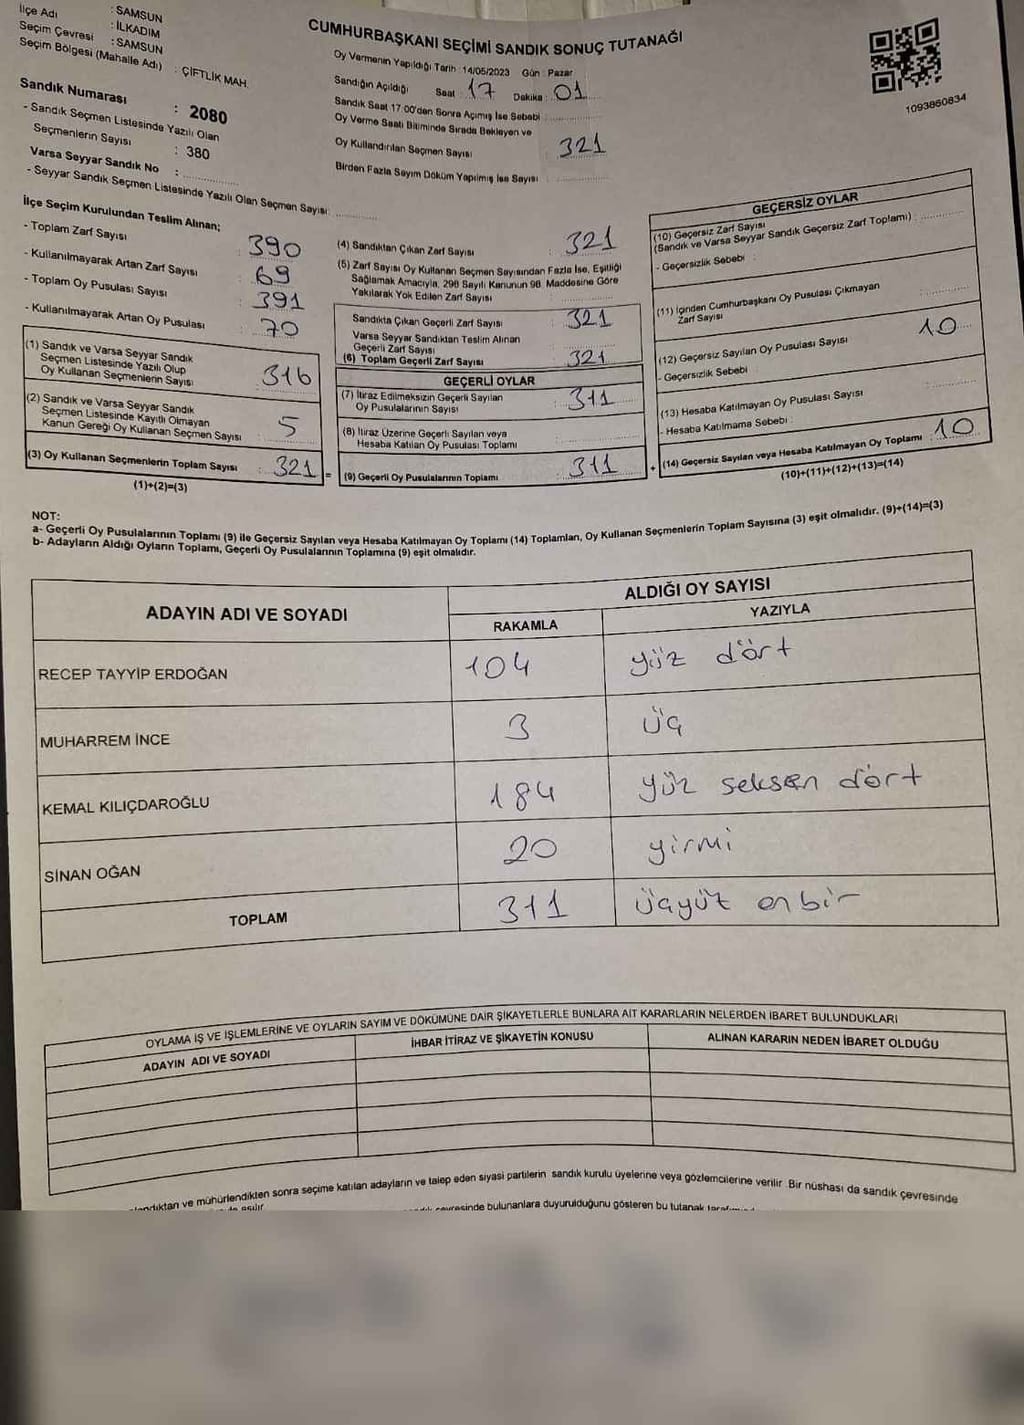 İlçe Adı : SAMSUN
: İLKADIM
Seçim Çevresi : SAMSUN
Seçim Bölgesi (Mahalle Adı) : ÇİFTLİK MAH.
Sandık Numarası : 2080
- Sandık Seçmen Listesinde Yazılı Olan
Seçmenlerin Sayısı : 380
Varsa Seyyar Sandık No :
- Seyyar Sandık Seçmen Listesinde Yazılı Olan Seçmen Sayısı:
CUMHURBAŞKANI SEÇİMİ SANDIK SONUÇ TUTANAĞI
Oy Vermenin Yapıldığı Tarih : 14/05/2023 Gün : Pazar
Sandığın Açıldığı Saat : 17 Dakika : 01
Sandık Saat 17:00'den Sonra Açımış İse Sebebi :
Oy Verme Saati Bitiminde Sırada Bekleyen ve
Oy Kullandırılan Seçmen Sayısı : 321
Birden Fazla Sayım Döküm Yapılmış İse Sayısı :
1093860834
İlçe Seçim Kurulundan Teslim Alınan;
- Toplam Zarf Sayısı : 390
- Kullanılmayarak Artan Zarf Sayısı : 69
- Toplam Oy Pusulası Sayısı : 391
- Kullanılmayarak Artan Oy Pusulası : 70
(1) Sandık ve Varsa Seyyar Sandık
Seçmen Listesinde Yazılı Olup
Oy Kullanan Seçmenlerin Sayısı : 316
(2) Sandık ve Varsa Seyyar Sandık
Seçmen Listesinde Kayıtlı Olmayan
Kanun Gereği Oy Kullanan Seçmen Sayısı : 5
(3) Oy Kullanan Seçmenlerin Toplam Sayısı : 321 =
(1)+(2)=(3)
(4) Sandıktan Çıkan Zarf Sayısı : 321
(5) Zarf Sayısı Oy Kullanan Seçmen Sayısından Fazla İse, Eşitliği
Sağlamak Amacıyla, 298 Sayılı Kanunun 98. Maddesine Göre
Yakılarak Yok Edilen Zarf Sayısı :
Sandıkta Çıkan Geçerli Zarf Sayısı : 321
Varsa Seyyar Sandıktan Teslim Alınan
Geçerli Zarf Sayısı :
(6) Toplam Geçerli Zarf Sayısı : 321
GEÇERLİ OYLAR
(7) İtiraz Edilmeksizin Geçerli Sayılan
Oy Pusulalarının Sayısı : 311
(8) İtiraz Üzerine Geçerli Sayılan veya
Hesaba Katılan Oy Pusulası Toplamı :
(9) Geçerli Oy Pusulalarının Toplamı : 311 +
GEÇERSİZ OYLAR
(10) Geçersiz Zarf Sayısı
(Sandık ve Varsa Seyyar Sandık Geçersiz Zarf Toplamı) :
- Geçersizlik Sebebi :
(11) İçinden Cumhurbaşkanı Oy Pusulası Çıkmayan
Zarf Sayısı :
(12) Geçersiz Sayılan Oy Pusulası Sayısı : 10
- Geçersizlik Sebebi :
(13) Hesaba Katılmayan Oy Pusulası Sayısı :
- Hesaba Katılmama Sebebi :
(14) Geçersiz Sayılan veya Hesaba Katılmayan Oy Toplamı : 10
(10)+(11)+(12)+(13)=(14)
NOT:
a- Geçerli Oy Pusulalarının Toplamı (9) ile Geçersiz Sayılan veya Hesaba Katılmayan Oy Toplamı (14) Toplamları, Oy Kullanan Seçmenlerin Toplam Sayısına (3) eşit olmalıdır. (9)+(14)=(3)
b- Adayların Aldığı Oyların Toplamı, Geçerli Oy Pusulalarının Toplamına (9) eşit olmalıdır.
ADAYIN ADI VE SOYADI ALDIĞI OY SAYISI
RAKAMLA YAZIYLA
RECEP TAYYİP ERDOĞAN 104 yüz dört
MUHARREM İNCE 3 üç
KEMAL KILIÇDAROĞLU 184 yüz seksen dört
SİNAN OĞAN 20 yirmi
TOPLAM 311 üçyüz onbir
OYLAMA İŞ VE İŞLEMLERİNE VE OYLARIN SAYIM VE DÖKÜMÜNE DAİR ŞİKAYETLERLE BUNLARA AİT KARARLARIN NELERDEN İBARET BULUNDUKLARI
ADAYIN ADI VE SOYADI İHBAR İTİRAZ VE ŞİKAYETİN KONUSU ALINAN KARARIN NEDEN İBARET OLDUĞU
ve mühürlendikten sonra seçime katılan adayların ve talep eden siyasi partilerin sandık kurulu üyelerine veya gözlemcilerine verilir. Bir nüshası da sandık çevresinde
bulunanlara duyurulduğunu gösteren bu tutanak